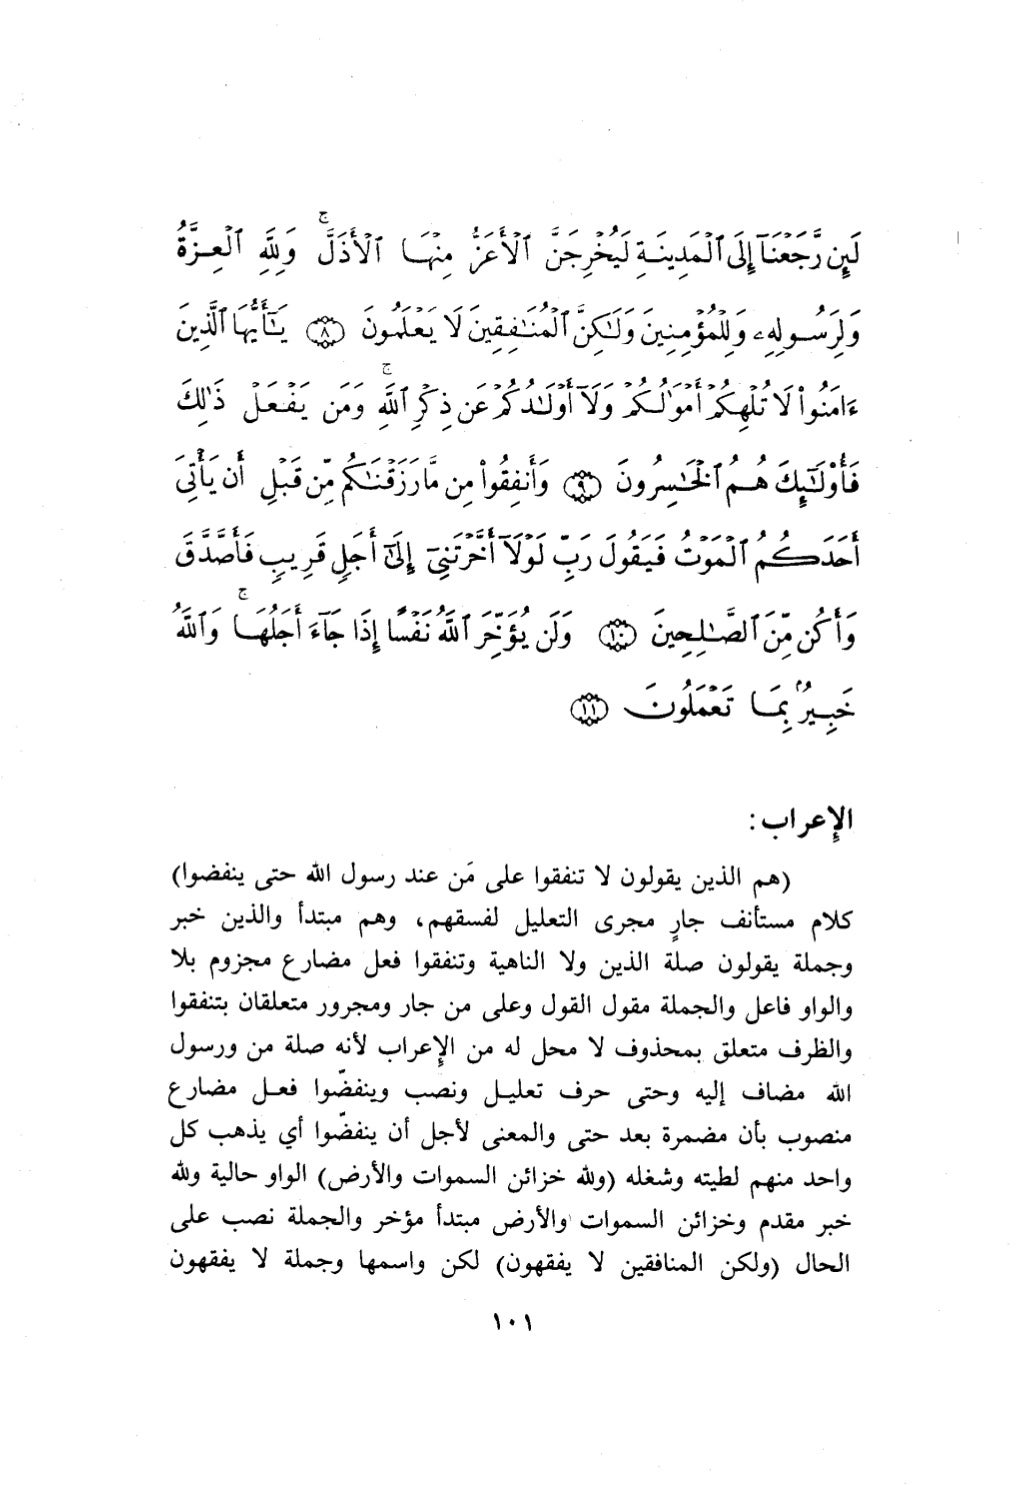 لَئِن رَّجَعْنَآ إِلَى ٱلْمَدِينَةِ لَيُخْرِجَنَّ ٱلْأَعَزُّ مِنْهَا ٱلْأَذَلَّ ۚ وَلِلَّهِ ٱلْعِزَّةُ
وَلِرَسُولِهِۦ وَلِلْمُؤْمِنِينَ وَلَـٰكِنَّ ٱلْمُنَـٰفِقِينَ لَا يَعْلَمُونَ ﴿٨﴾ يَـٰٓأَيُّهَا ٱلَّذِينَ
ءَامَنُوا۟ لَا تُلْهِكُمْ أَمْوَٰلُكُمْ وَلَآ أَوْلَـٰدُكُمْ عَن ذِكْرِ ٱللَّهِ ۚ وَمَن يَفْعَلْ ذَٰلِكَ
فَأُو۟لَـٰٓئِكَ هُمُ ٱلْخَـٰسِرُونَ ﴿٩﴾ وَأَنفِقُوا۟ مِن مَّا رَزَقْنَـٰكُم مِّن قَبْلِ أَن يَأْتِىَ
أَحَدَكُمُ ٱلْمَوْتُ فَيَقُولَ رَبِّ لَوْلَآ أَخَّرْتَنِىٓ إِلَىٰٓ أَجَلٍ قَرِيبٍ فَأَصَّدَّقَ
وَأَكُن مِّنَ ٱلصَّـٰلِحِينَ ﴿١٠﴾ وَلَن يُؤَخِّرَ ٱللَّهُ نَفْسًا إِذَا جَآءَ أَجَلُهَا ۚ وَٱللَّهُ
خَبِيرٌۢ بِمَا تَعْمَلُونَ ﴿١١﴾
الإعراب :
(هم الذين يقولون لا تنفقوا على مَن عند رسول الله حتى ينفضوا)
كلام مستأنف جارٍ مجرى التعليل لفسقهم، وهم مبتدأ والذين خبر
وجملة يقولون صلة الذين ولا الناهية وتنفقوا فعل مضارع مجزوم بلا
والواو فاعل والجملة مقول القول وعلى من جار ومجرور متعلقان بتنفقوا
والظرف متعلق بمحذوف لا محل له من الإعراب لأنه صلة من ورسول
الله مضاف إليه وحتى حرف تعليل ونصب وينفضّوا فعل مضارع
منصوب بأن مضمرة بعد حتى والمعنى لأجل أن ينفضّوا أي يذهب كل
واحد منهم لطيته وشغله (ولله خزائن السموات والأرض) الواو حالية ولله
خبر مقدم وخزائن السموات والأرض مبتدأ مؤخر والجملة نصب على
الحال (ولكن المنافقين لا يفقهون) لكن واسمها وجملة لا يفقهون
١٠١